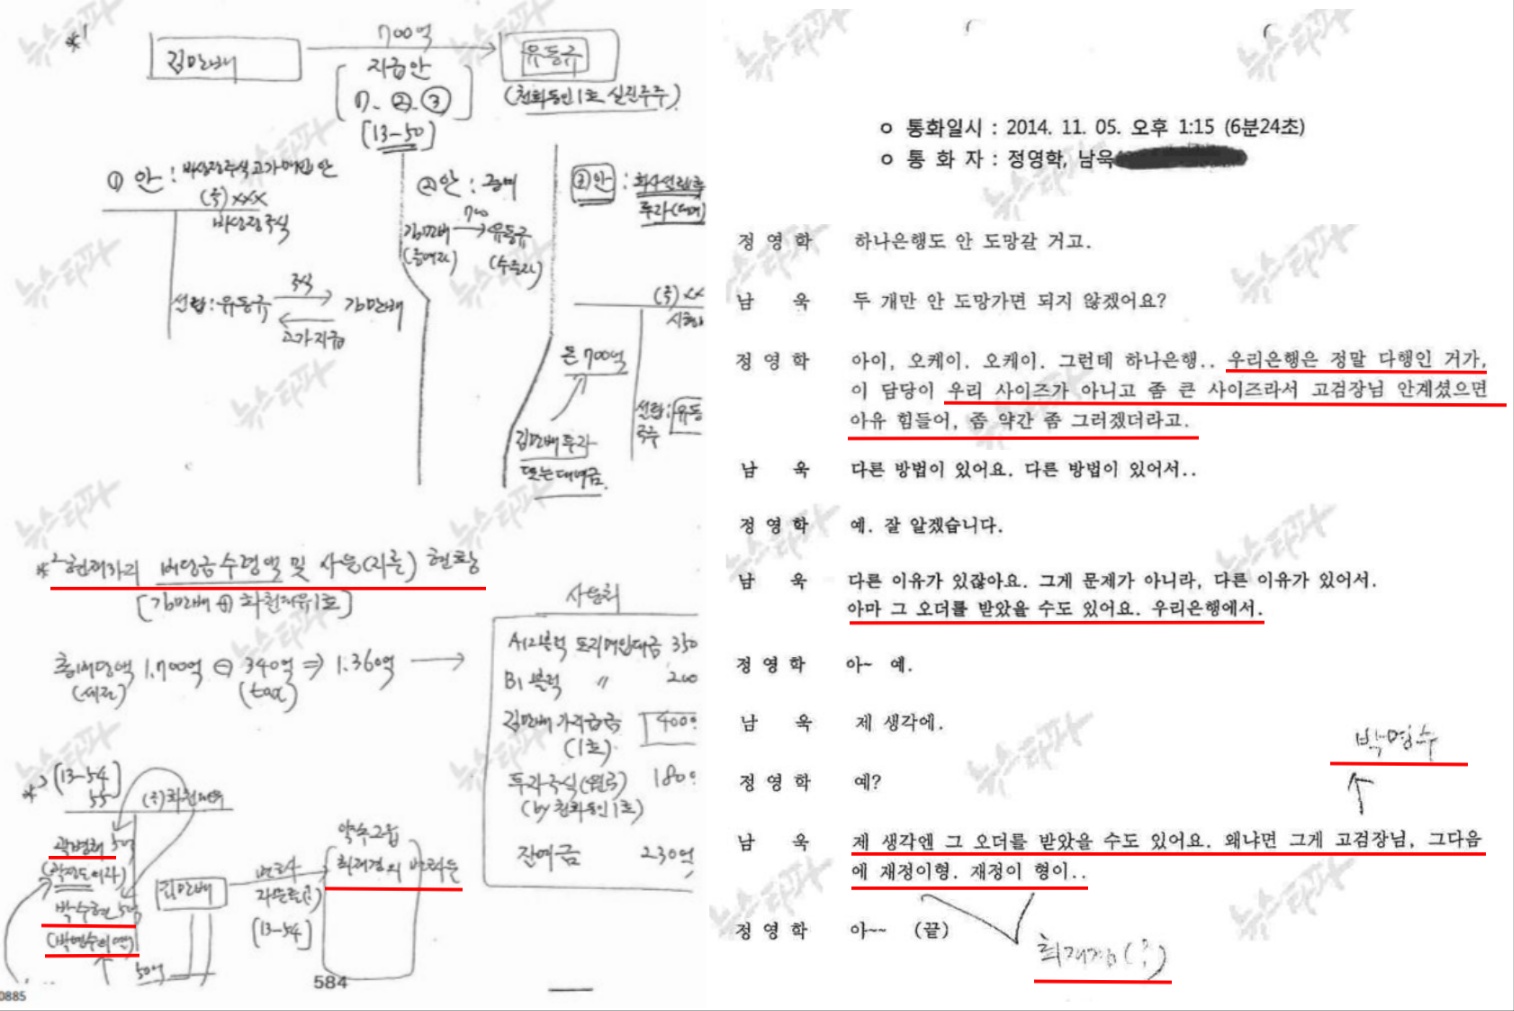 *1
김만배
700억
유동규
지급안
①. ②. ③
[13-50]
(천화동인1호 실질주주)
① 안 : 비상장주식 고가매입 안
(주) xxx
비상장주식
설립 : 유동규
주식
김만배
고가지급
② 안 : 증여
김만배
700
유동규
(증여자)
(수증자)
③ 안 : 회사설립후
투자(대여)
(주) xx
돈 700억
설립 : 유동
김만배 투자
또는 대여금
*2 현재까지 배당금 수령액 및 사용(자금) 현황
[김만배 ⊕ 화천대유1호]
총배당액 1,700억 ⊖ 340억 ⇒ 1,360억
(세전)
(tax)
사용처
A12블럭 토지매입대금 350
B1 블럭 〃 200
김만배 가지급금 400
(1호)
투자주식
180
(by 천화동인1호)
잔여금 230억
*3 [13-54
55
(주)화천대유
곽병채 50
박수현 50
김만배
약속그룹
[13-54]
50억
584
0885
통화일시 : 2014. 11. 05. 오후 1:15 (6분24초)
통 화 자 : 정영학, 남욱
정 영 학 하나은행도 안 도망갈 거고.
남 욱 두 개만 안 도망가면 되지 않겠어요?
정 영 학 아이, 오케이. 오케이. 그런데 하나은행.. 우리은행은 정말 다행인 거가,
이 담당이 우리 사이즈가 아니고 좀 큰 사이즈라서 고검장님 안계셨으면
아유 힘들어, 좀 약간 좀 그러겠더라고.
남 욱 다른 방법이 있어요. 다른 방법이 있어서..
정 영 학 예. 잘 알겠습니다.
남 욱 다른 이유가 있잖아요. 그게 문제가 아니라, 다른 이유가 있어서.
아마 그 오더를 받았을 수도 있어요. 우리은행에서.
정 영 학 아~ 예.
남 욱 제 생각에.
박영수
정 영 학 예?
남 욱 제 생각엔 그 오더를 받았을 수도 있어요. 왜냐면 그게 고검장님, 그다음
에 재정이형. 재정이 형이..
정 영 학 아~~ (끝)
뉴스타파